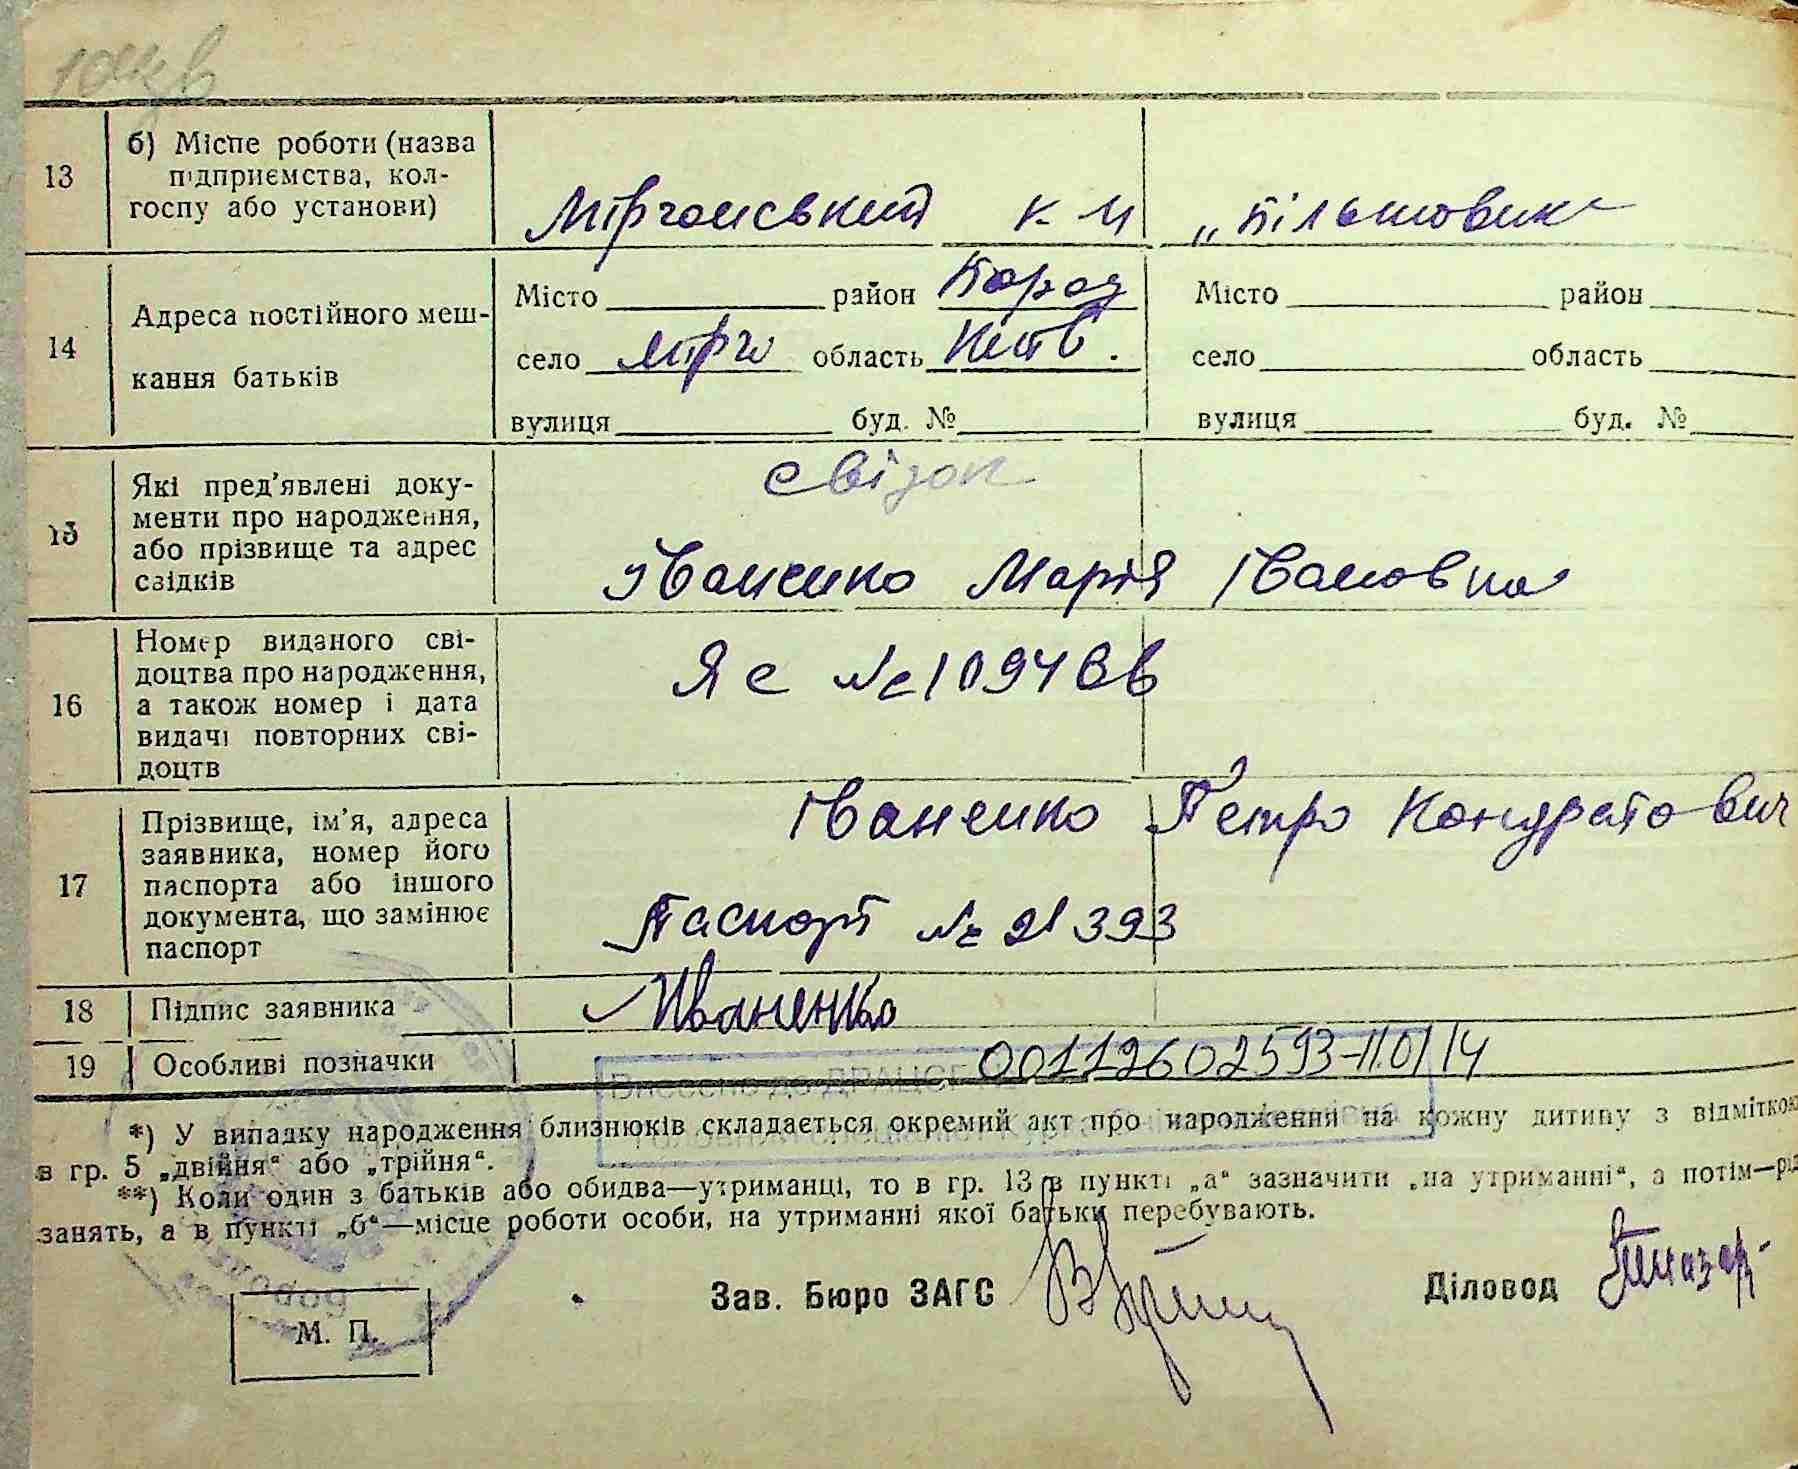 13
б) Місце роботи (назва
підприємства, кол-
госпу або установи)
к-п „Більшовик"
14
Адреса постійного меш-
кання батьків
Місто район Бород
Місто район
село Мірча область Київ.
село область
вулиця буд. №
вулиця буд. №
15
Які пред'явлені доку-
менти про народження,
або прізвище та адрес
свідків
Іваненко Марія Івановна
16
Номер виданого сві-
доцтва про народження,
а також номер і дата
видачі повторних сві-
доцтв
Яс №
17
Прізвище, ім'я, адреса
заявника, номер його
паспорта або іншого
документа, що замінює
паспорт
Іваненко Петро Кондратович
Паспорт № 21393
18
Підпис заявника
Иваненко
19
Особливі позначки
00112602593-11.01.14
Внесено до ДРАЦСГ
*) У випадку народження близнюків складається окремий акт про народження на кожну дитину з відміткою
в гр. 5 „двійня" або „трійня".
**) Коли один з батьків або обидва—утриманці, то в гр. 13 в пункті „а" зазначити „на утриманні", а потім—рід
занять, а в пункті „б"—місце роботи особи, на утриманні якої батьки перебувають.
Зав. Бюро ЗАГС
Діловод
М. П.